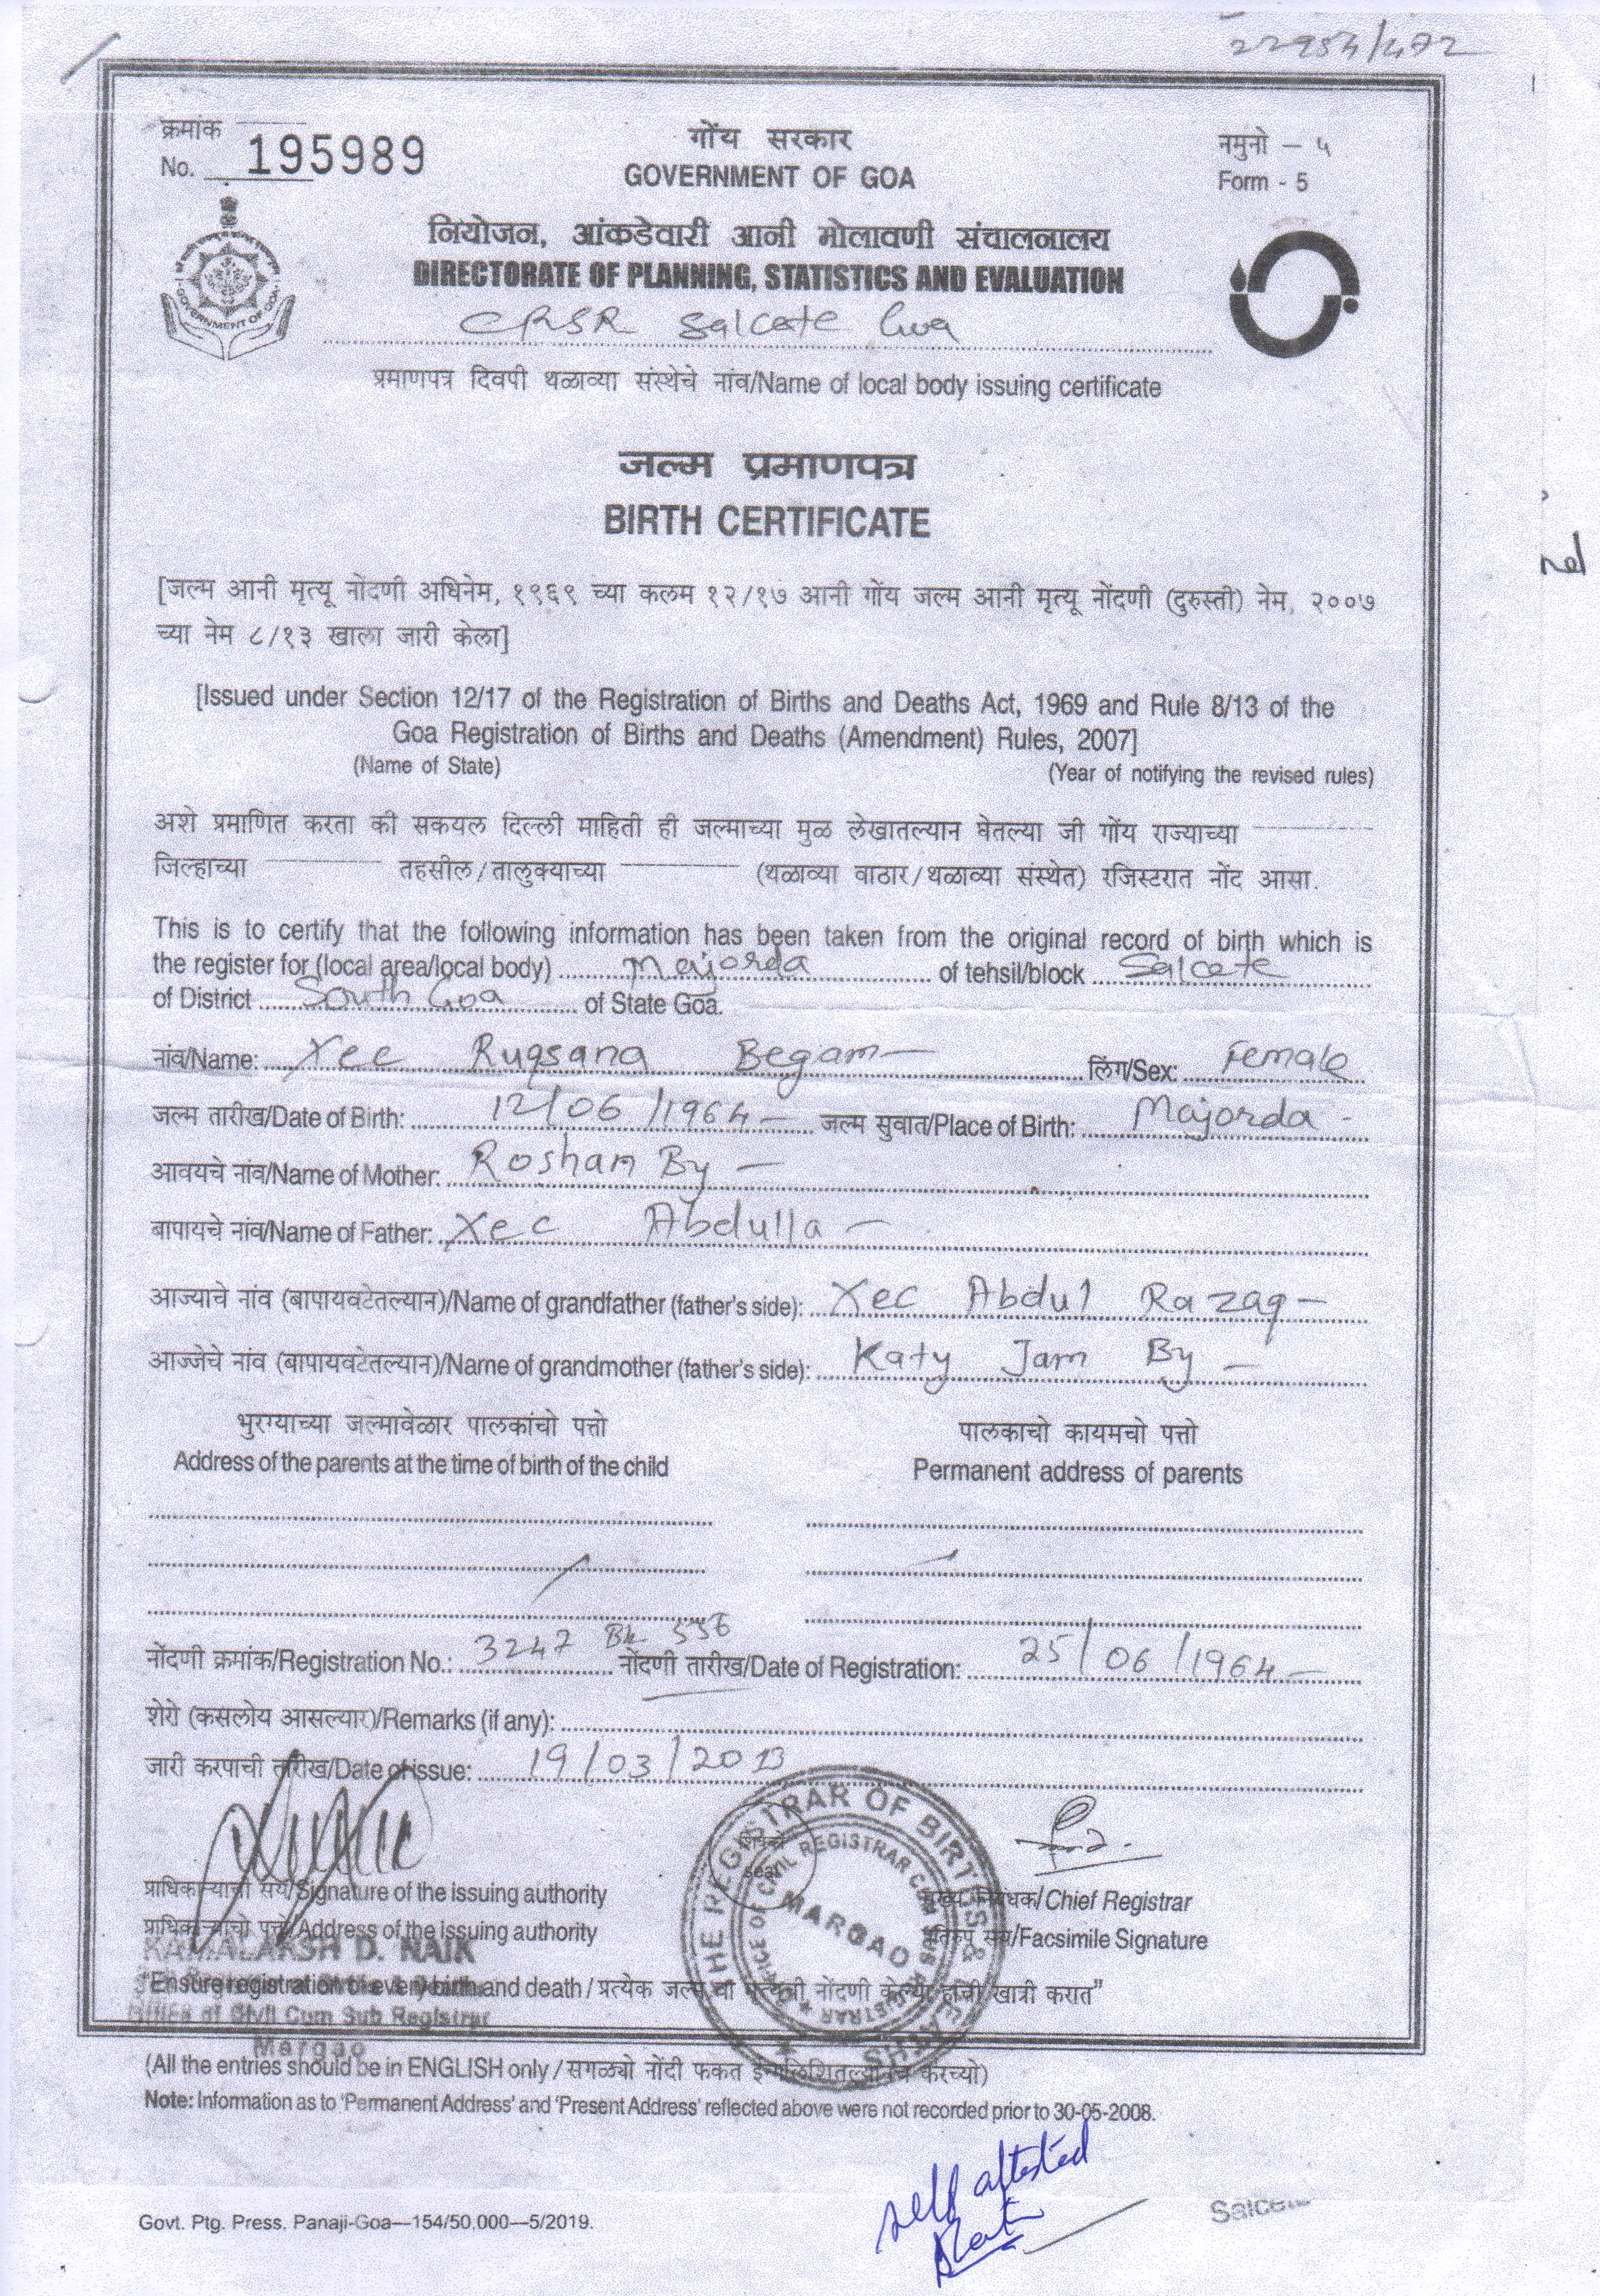 22954/472
क्रमांक
No. 195989
गोंय सरकार
GOVERNMENT OF GOA
नमुनो – ५
Form - 5
नियोजन, आंकडेवारी आनी मोलावणी संचालनालय
DIRECTORATE OF PLANNING, STATISTICS AND EVALUATION
GOVERNMENT OF GOA
CRSR Salcete Goa
प्रमाणपत्र दिवपी थळाव्या संस्थेचे नांव/Name of local body issuing certificate
जल्म प्रमाणपत्र
BIRTH CERTIFICATE
[जल्म आनी मृत्यू नोंदणी अधिनेम, १९६९ च्या कलम १२/१७ आनी गोंय जल्म आनी मृत्यू नोंदणी (दुरुस्ती) नेम, २००७
च्या नेम ८/१३ खाला जारी केला]
[Issued under Section 12/17 of the Registration of Births and Deaths Act, 1969 and Rule 8/13 of the
Goa Registration of Births and Deaths (Amendment) Rules, 2007]
(Name of State) (Year of notifying the revised rules)
अशे प्रमाणित करता की सकयल दिल्ली माहिती ही जल्माच्या मुळ लेखातल्यान घेतल्या जी गोंय राज्याच्या
जिल्हाच्या तहसील/तालुक्याच्या (थळाव्या वाठार/थळाव्या संस्थेत) रजिस्टरात नोंद आसा.
This is to certify that the following information has been taken from the original record of birth which is
the register for (local area/local body) Majorda of tehsil/block Salcete
of District South Goa of State Goa.
नांव/Name: Xec Ruqsana Begam – लिंग/Sex: Female
जल्म तारीख/Date of Birth: 12/06/1964 – जल्म सुवात/Place of Birth: Majorda -
आवयचे नांव/Name of Mother: Rosham By –
बापायचे नांव/Name of Father: Xec Abdulla –
आज्याचे नांव (बापायवटेतल्यान)/Name of grandfather (father's side): Xec Abdul Razaq –
आज्जेचे नांव (बापायवटेतल्यान)/Name of grandmother (father's side): Katy Jam By –
भुरग्याच्या जल्मावेळार पालकांचो पत्तो
Address of the parents at the time of birth of the child
पालकाचो कायमचो पत्तो
Permanent address of parents
नोंदणी क्रमांक/Registration No.: 3247 Bk 556 नोंदणी तारीख/Date of Registration: 25/06/1964 –
शेरो (कसलोय आसल्यार)/Remarks (if any):
जारी करपाची तारीख/Date of issue: 19/03/2013
THE REGISTRAR OF BIRTHS &
OFFICE OF CIVIL REGISTRAR CUM
MARGAO
seal
प्राधिकाऱ्याची सय/Signature of the issuing authority
Chief Registrar
प्राधिकाऱ्याचो पत्तो/Address of the issuing authority
Facsimile Signature
KAMALAKSH D. NAIK
"Ensure registration of every birth and death/प्रत्येक जल्म वा मृत्यूची नोंदणी केल्या हाची खात्री करात"
Office of Civil Cum Sub Registrar
Margao
(All the entries should be in ENGLISH only/सगळ्यो नोंदी फकत इंग्लिशितल्यानच करच्यो)
Note: Information as to 'Permanent Address' and 'Present Address' reflected above were not recorded prior to 30-05-2008.
self attested
Govt. Ptg. Press, Panaji-Goa—154/50,000—5/2019.